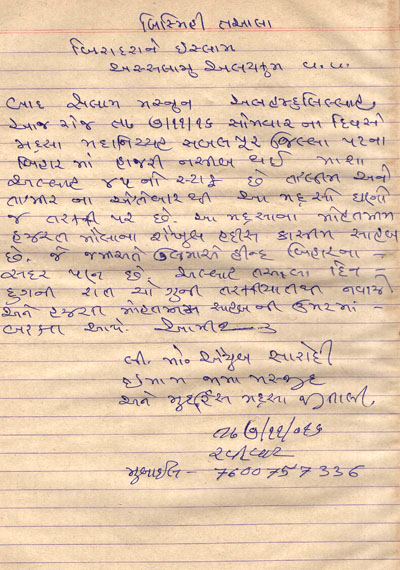 બિસ્મિહી તઆલા
બિરાદરાને ઇસ્લામ
અસ્સલામુ અલયકુમ વ. વ.
બાદ સલામ મસ્નુન અલહમ્દુલિલ્લાહ,
આજ રોજ તા૦ ૭/૧૧/૧૬ સોમવાર ના દિવસે
મદ્રસા સબલપૂર જિલ્લા પટના
બિહાર માં હાજરી નસીબ થઈ માશા
અલ્લાહ ૪૫ નો સ્ટાફ છે તાલીમ અને
તામીર ના એતેબાર થી આ મદ્રસો ઘણો
જ તરક્કી પર છે. આ મદ્રસાના મોહતમીમ
હજરત મૌલાના શૈખુલ હદીસ કાસીમ સાહેબ
છે. જે જમીઅતે ઉલમાએ હીન્દ બિહારના
સદર પણ છે. અલ્લાહ તઆલા દિન
દુગની રાત ચોગુની તરક્કીયાતથી નવાજે
અને હજરત મોહતમીમ સાહબ ની ઉમરમાં
બરકત આપે. આમીન
લી. મો૦ ઐયુબ
ઇમામ જામા મસ્જીદ
અને મુદર્રિસ મદ્રસા
તા૦ ૭/૧૧/૦૧૬
મુબાઈલ - 7600757336